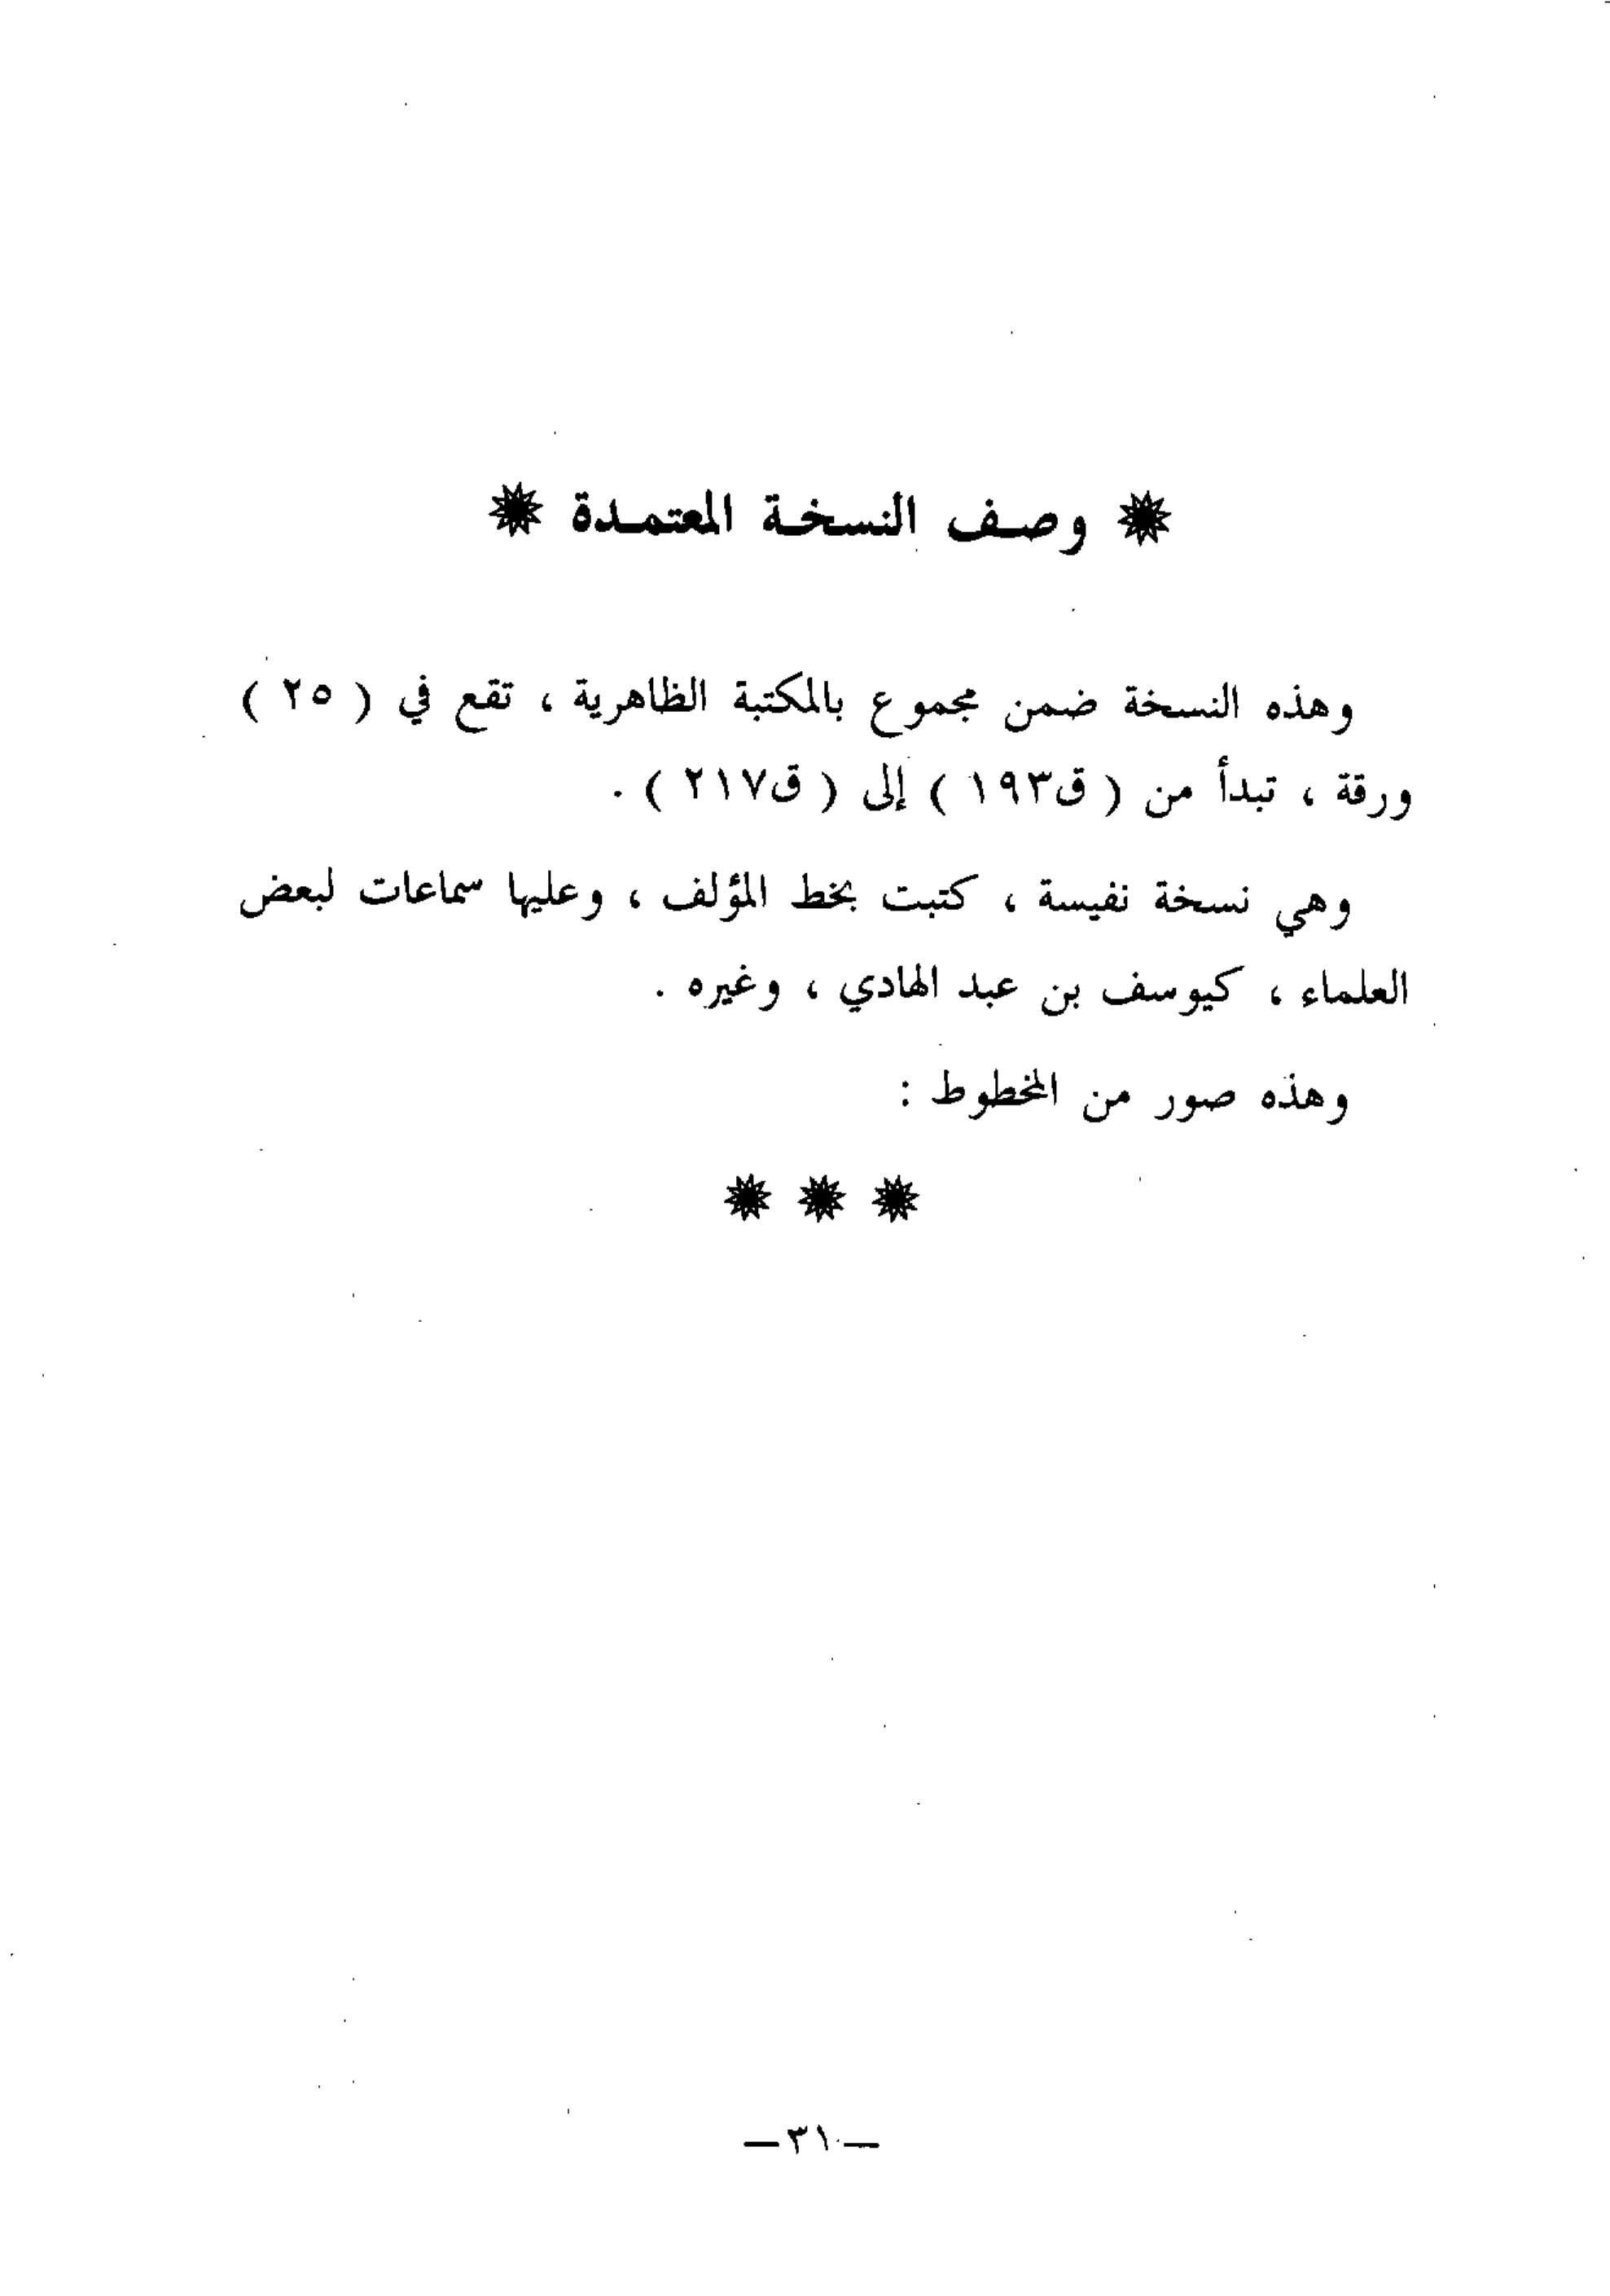 وصف النسخة المعتمدة
وهذه النسخة ضمن مجموع بالمكتبة الظاهرية ، تقع في ( ٢٥ )
ورقة ، تبدأ من ( ق١٩٣ ) إلى ( ق٢١٧ ) .
وهي نسخة نفيسة ، كتبت بخط المؤلف ، وعليها سماعات لبعض
العلماء ، كيوسف بن عبد الهادي ، وغيره .
وهذه صور من المخطوط :
— ٣١ —